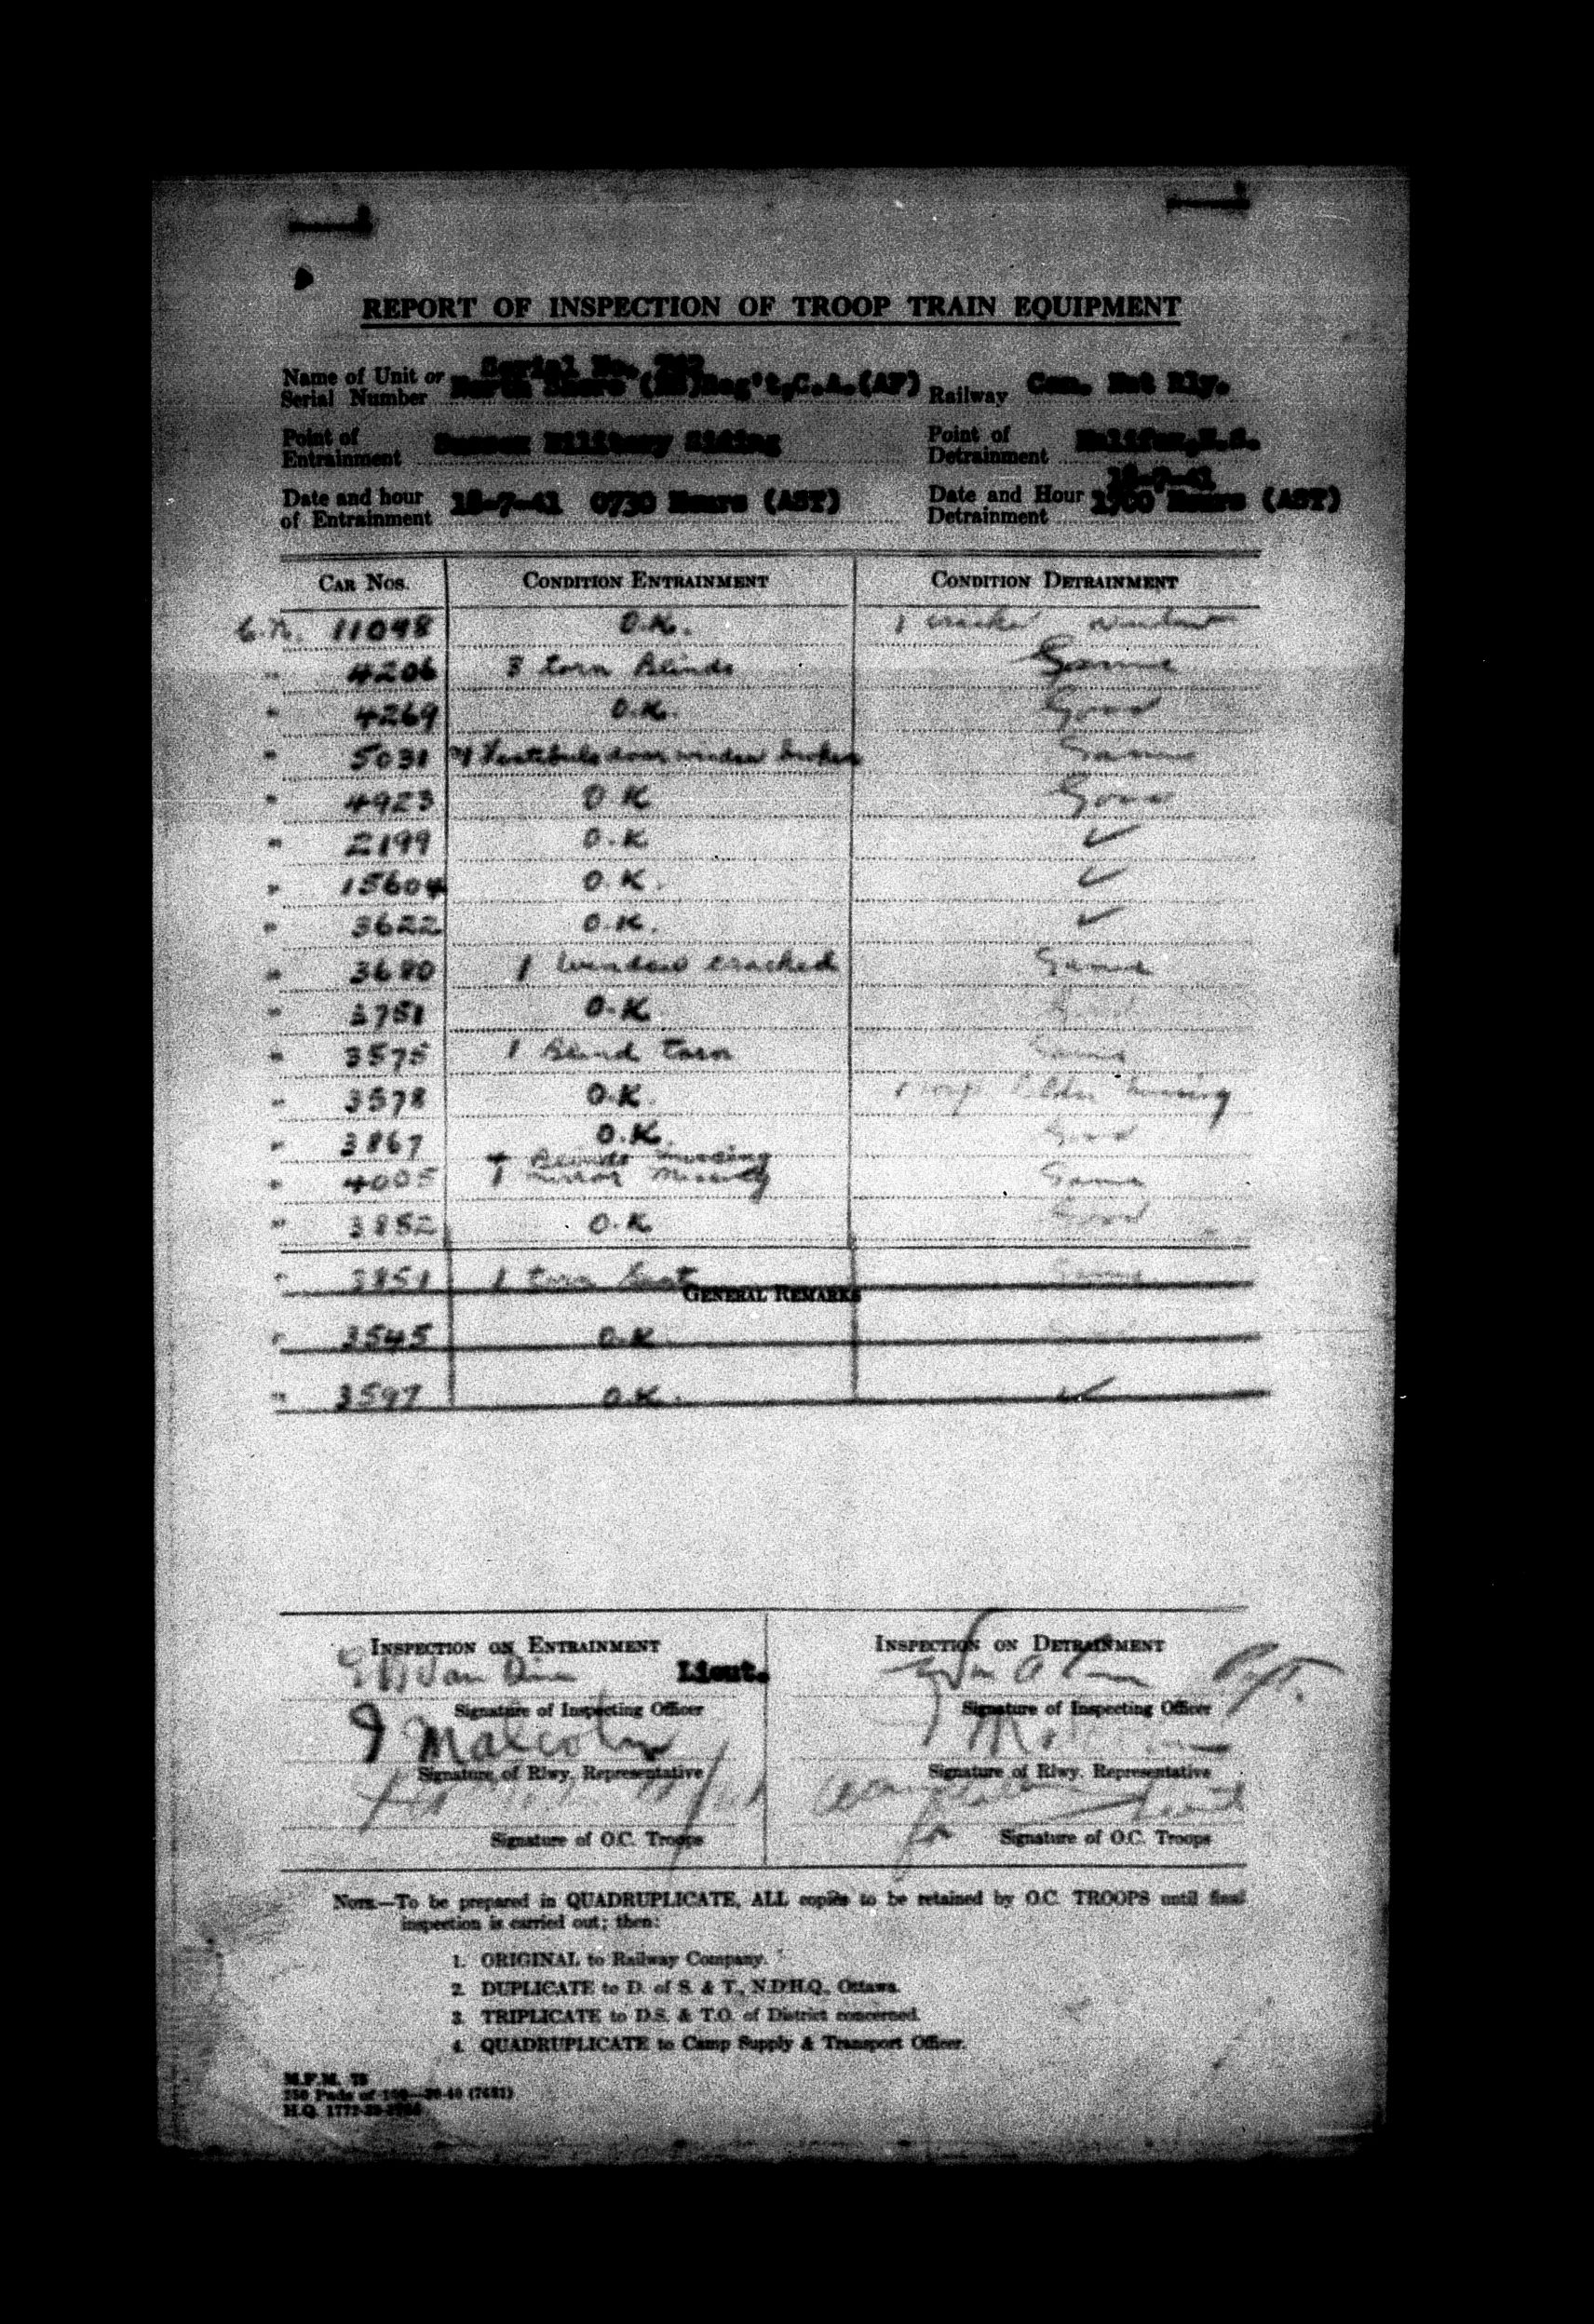 REPORT OF INSPECTION OF TROOP TRAIN EQUIPMENT
Serial No.
Name of Unit or North Shore (NB)Reg't,C.A.(AF) Railway Can. Nat Rly.
Serial Number
Point of Entrainment Sussex Military Siding Point of Detrainment Halifax,N.S.
18-7-41
Date and hour of Entrainment 18-7-41 0730 Hours (AST) Date and Hour Detrainment 1700 Hours (AST)
CAR NOS. CONDITION ENTRAINMENT CONDITION DETRAINMENT
C.N. 11098 O.K. 1 window
" 4206 3 torn Blinds Same
" 4269 O.K. Good
" 5031 1 Vestibule door window broken Same
" 4923 O.K Good
" 2199 O.K ✓
" 15604 O.K. ✓
" 3622 O.K. ✓
" 3680 1 Window cracked Same
" 3751 O.K Good
" 3575 1 Blind torn Same
" 3578 O.K. 1 missing
" 3867 O.K. Good
4 Blinds missing
" 4005 1 mirror missing Same
" 3852 O.K Good
" 3851 1 torn Seat Same
GENERAL REMARKS
" 3545 O.K
" 3597 O.K. ✓
INSPECTION ON ENTRAINMENT INSPECTION ON DETRAINMENT
Van Dine Lieut. Capt.
Signature of Inspecting Officer Signature of Inspecting Officer
J Malcolm
Signature of Rlwy. Representative Signature of Rlwy. Representative
Lieut
for
Signature of O.C. Troops Signature of O.C. Troops
NOTE.—To be prepared in QUADRUPLICATE, ALL copies to be retained by O.C. TROOPS until final
inspection is carried out; then:
1. ORIGINAL to Railway Company.
2. DUPLICATE to D. of S. & T., N.D.H.Q., Ottawa.
3. TRIPLICATE to D.S. & T.O. of District concerned.
4. QUADRUPLICATE to Camp Supply & Transport Officer.
M.F.M. 75
250 Pads of
H.Q. 1772-39